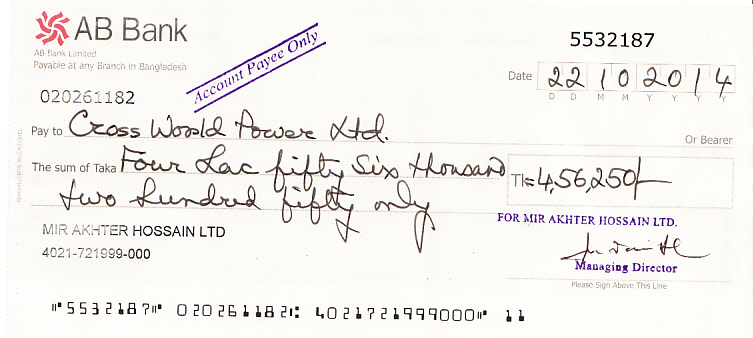 AB Bank
AB Bank Limited
Payable at any Branch in Bangladesh
Account Payee Only
5532187
Date 22 10 2014
D D M M Y Y Y Y
020261182
Pay to Cross World Power Ltd.
Or Bearer
The sum of Taka Four Lac fifty Six thousand
two hundred fifty only
Tk= 4,56,250/-
FOR MIR AKHTER HOSSAIN LTD.
MIR AKHTER HOSSAIN LTD
4021-721999-000
Managing Director
Please Sign Above This Line
⑈5532187⑈ 020261182⑆ 4021721999000⑈ 11